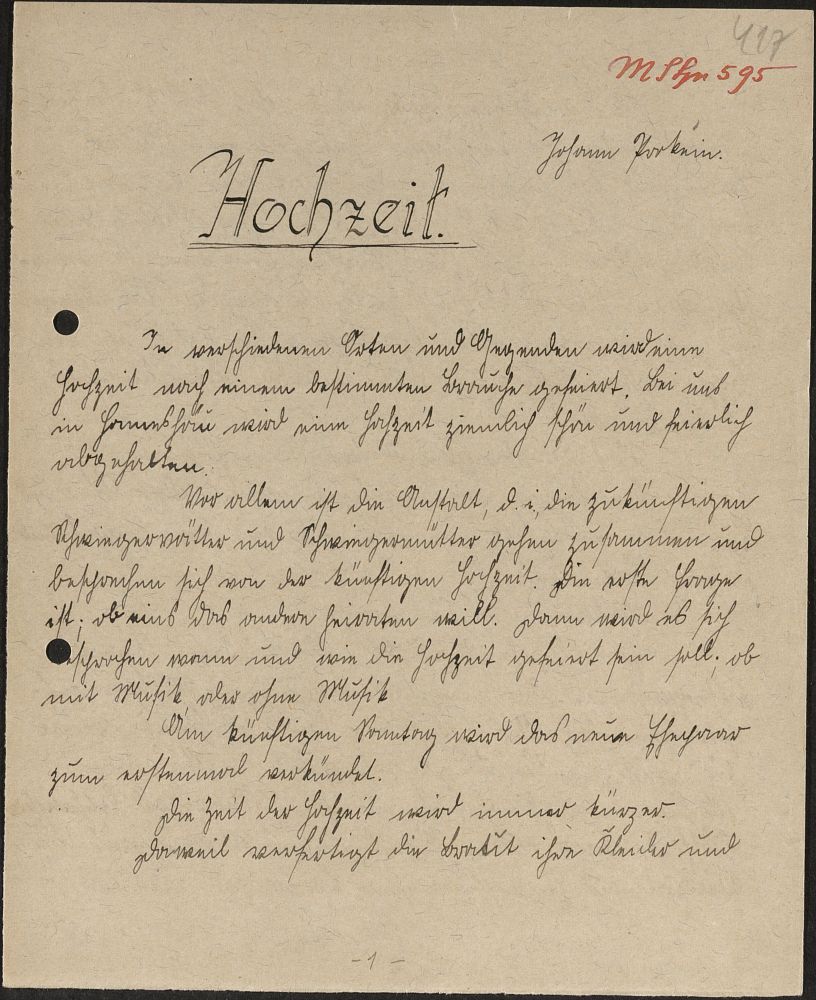 417
M S Gn 595
Johann Porkein.
Hochzeit.
In verschiedenen Orten und Gegenden wird eine
Hochzeit nach einem bestimmten Brauche gefeiert. Bei uns
in Hanneshäu wird eine Hochzeit ziemlich schön und feierlich
abgehalten.
Vor allem ist die Anstalt, d. i. die zukünftigen
Schwiegervätter und Schwiegermütter gehen zusammen und
besprechen sich von der künftigen Hochzeit. Die erste Frage
ist; ob eins das andere heiraten will. Dann wird es sich
besprochen wann und wie die Hochzeit gefeiert sein soll; ob
mit Musik, oder ohne Musik
Am künftigen Sonntag wird das neue Ehepaar
zum erstenmal verkündet.
Die Zeit der Hochzeit wird immer kürzer.
Daweil verfertigt die Braut ihre Kleider und
- 1 -